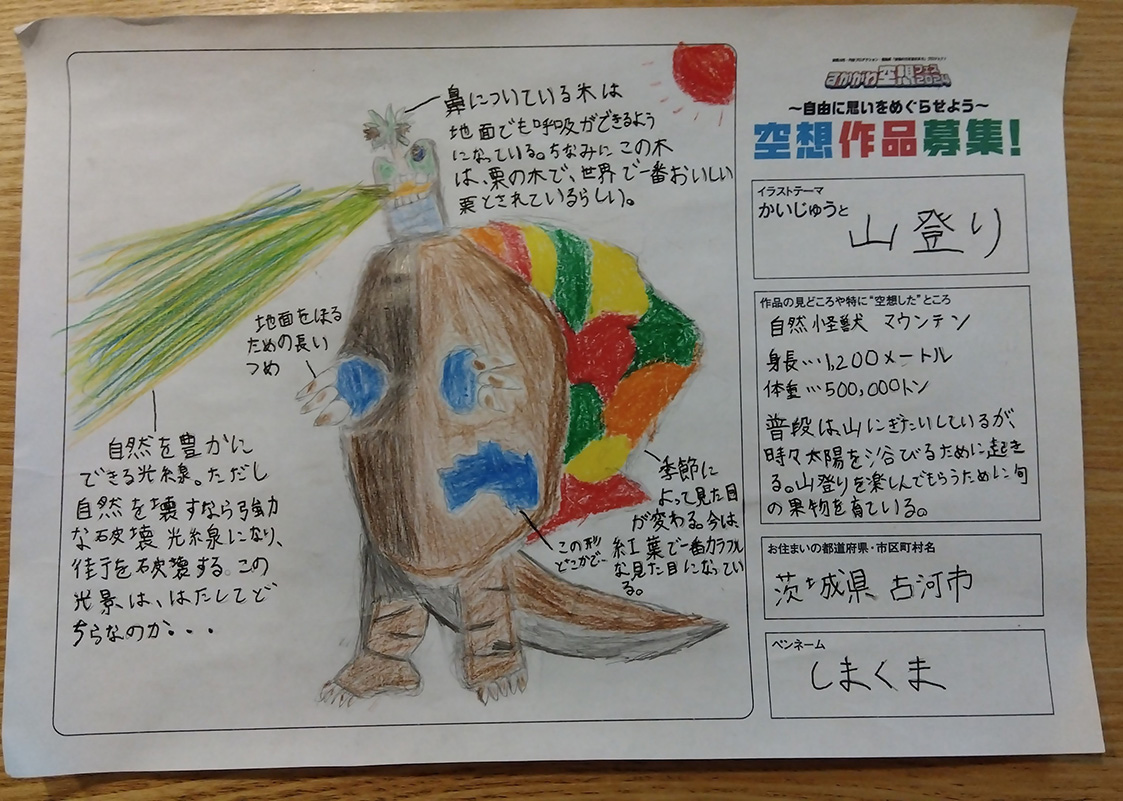 鼻についている木は
地面でも呼吸ができるよう
になっている。ちなみにこの木
は、栗の木で、世界で一番おいしい
栗とされているらしい。
地面をほる
ための長い
つめ
自然を豊かに
できる光線。ただし
自然を壊すなら強力
な破壊光線になり、
街を破壊する。この
光景は、はたしてど
ちらなのか・・・
季節に
よって見た目
が変わる。今は、
紅葉で一番カラフル
な見た目になってい
る。
この形
どこかで…
すかがわ空想フェス2024
~自由に思いをめぐらせよう~
空想作品募集!
イラストテーマ
かいじゅうと
山登り
作品の見どころや特に“空想した”ところ
自然怪獣 マウンテン
身長…1,200メートル
体重…500,000トン
普段は山にぎたいしているが、
時々太陽を浴びるために起き
る。山登りを楽しんでもらうために旬
の果物を育ている。
お住まいの都道府県・市区町村名
茨城県 古河市
ペンネーム
しまくま